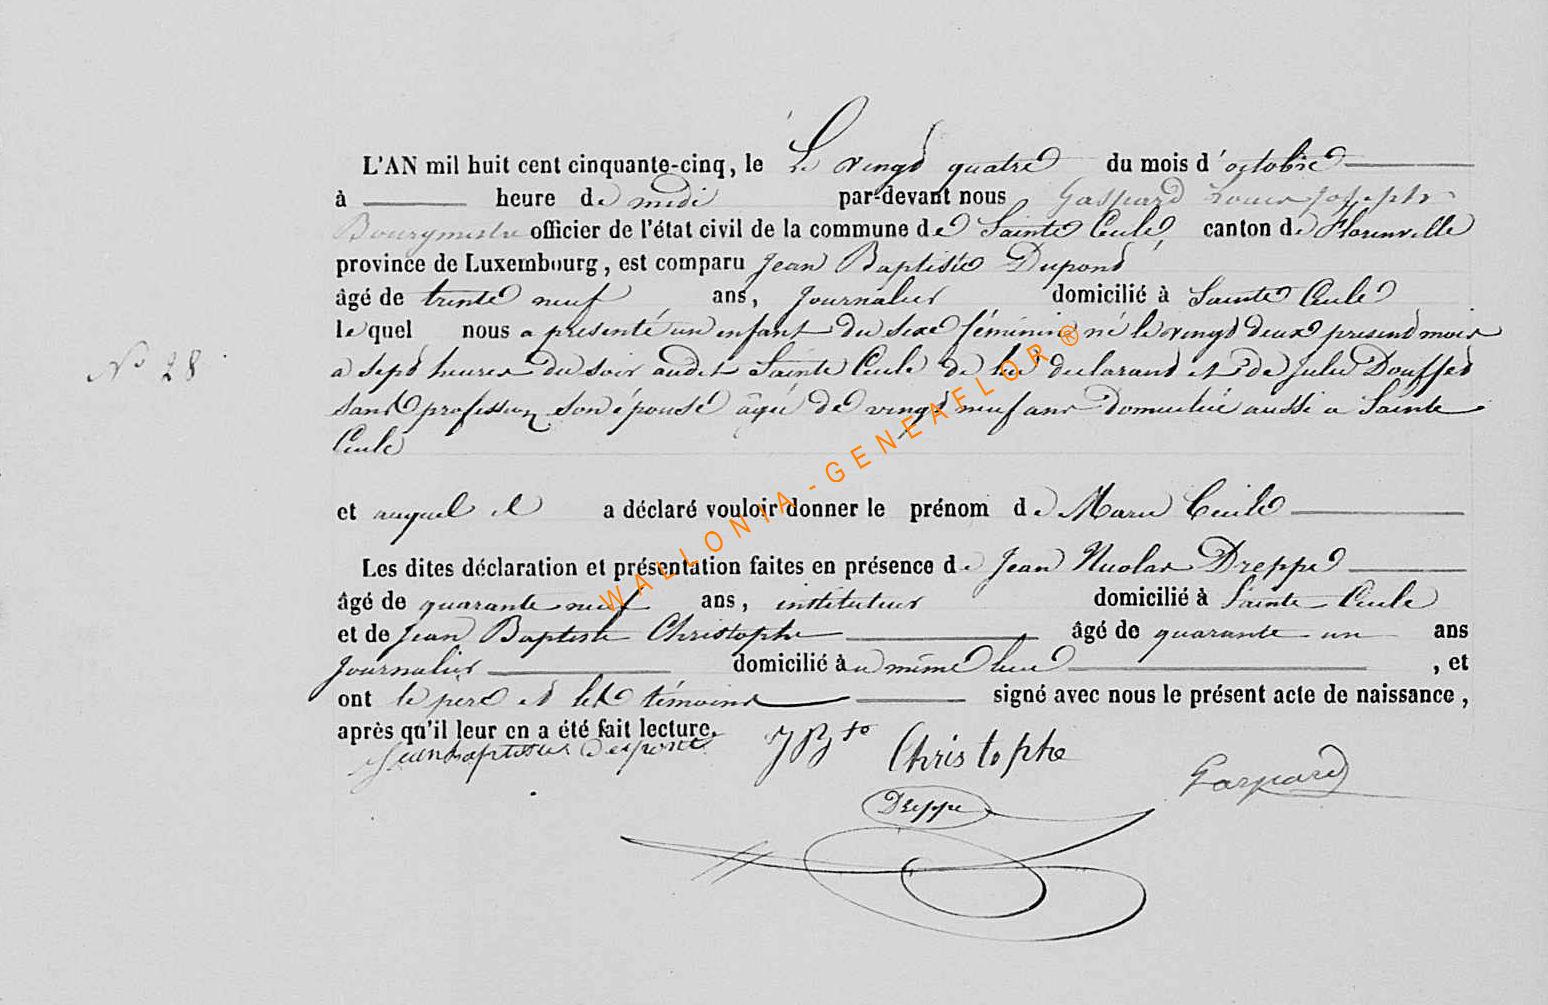 L'AN mil huit cent cinquante-cinq, le Le vingt quatre du mois d'octobre
à heure de midi par-devant nous Gaspard Louis Joseph
Bourgmestre officier de l'état civil de la commune de Sainte Cecile canton de Florenville
province de Luxembourg, est comparu Jean Baptiste Dupond
âgé de trente neuf ans, Journalier domicilié à Sainte Cecile
N° 28
lequel nous a présenté un enfant du sexe féminin né le vingt deux present mois
a sept heures du soir audit Sainte Cecile de lui declarant et de Julie Douffet
sans profession son épouse âgée de vingt neuf ans Domiciliée aussi a Sainte
Cecile
et auquel il a déclaré vouloir donner le prénom de Marie Cecile
Les dites déclaration et présentation faites en présence de Jean Nicolas Dreppe
âgé de quarante neuf ans, instituteur domicilié à Sainte Cecile
et de Jean Baptiste Christophe âgé de quarante un ans
Journalier domicilié au même lieu, et
ont le pere et les témoins signé avec nous le présent acte de naissance,
après qu'il leur en a été fait lecture.
JBte Christophe
Gaspard
Dreppe
WALLONIA-GENEAFLOR®